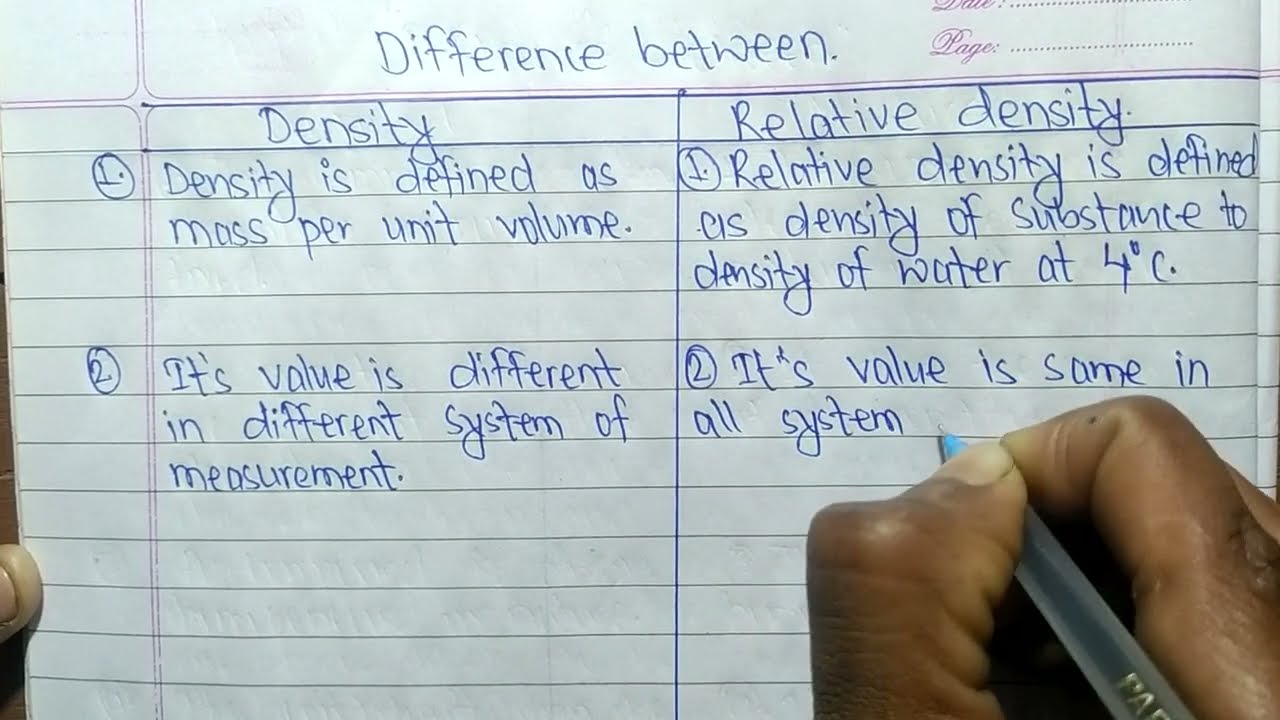 Date: ........................
Page: ........................
Difference between.
Density
Relative density.
① Density is defined as
mass per unit volume.
② It's value is different
in different system of
measurement.
① Relative density is defined
as density of substance to
density of water at 4°C.
② It's value is same in
all system
PAR